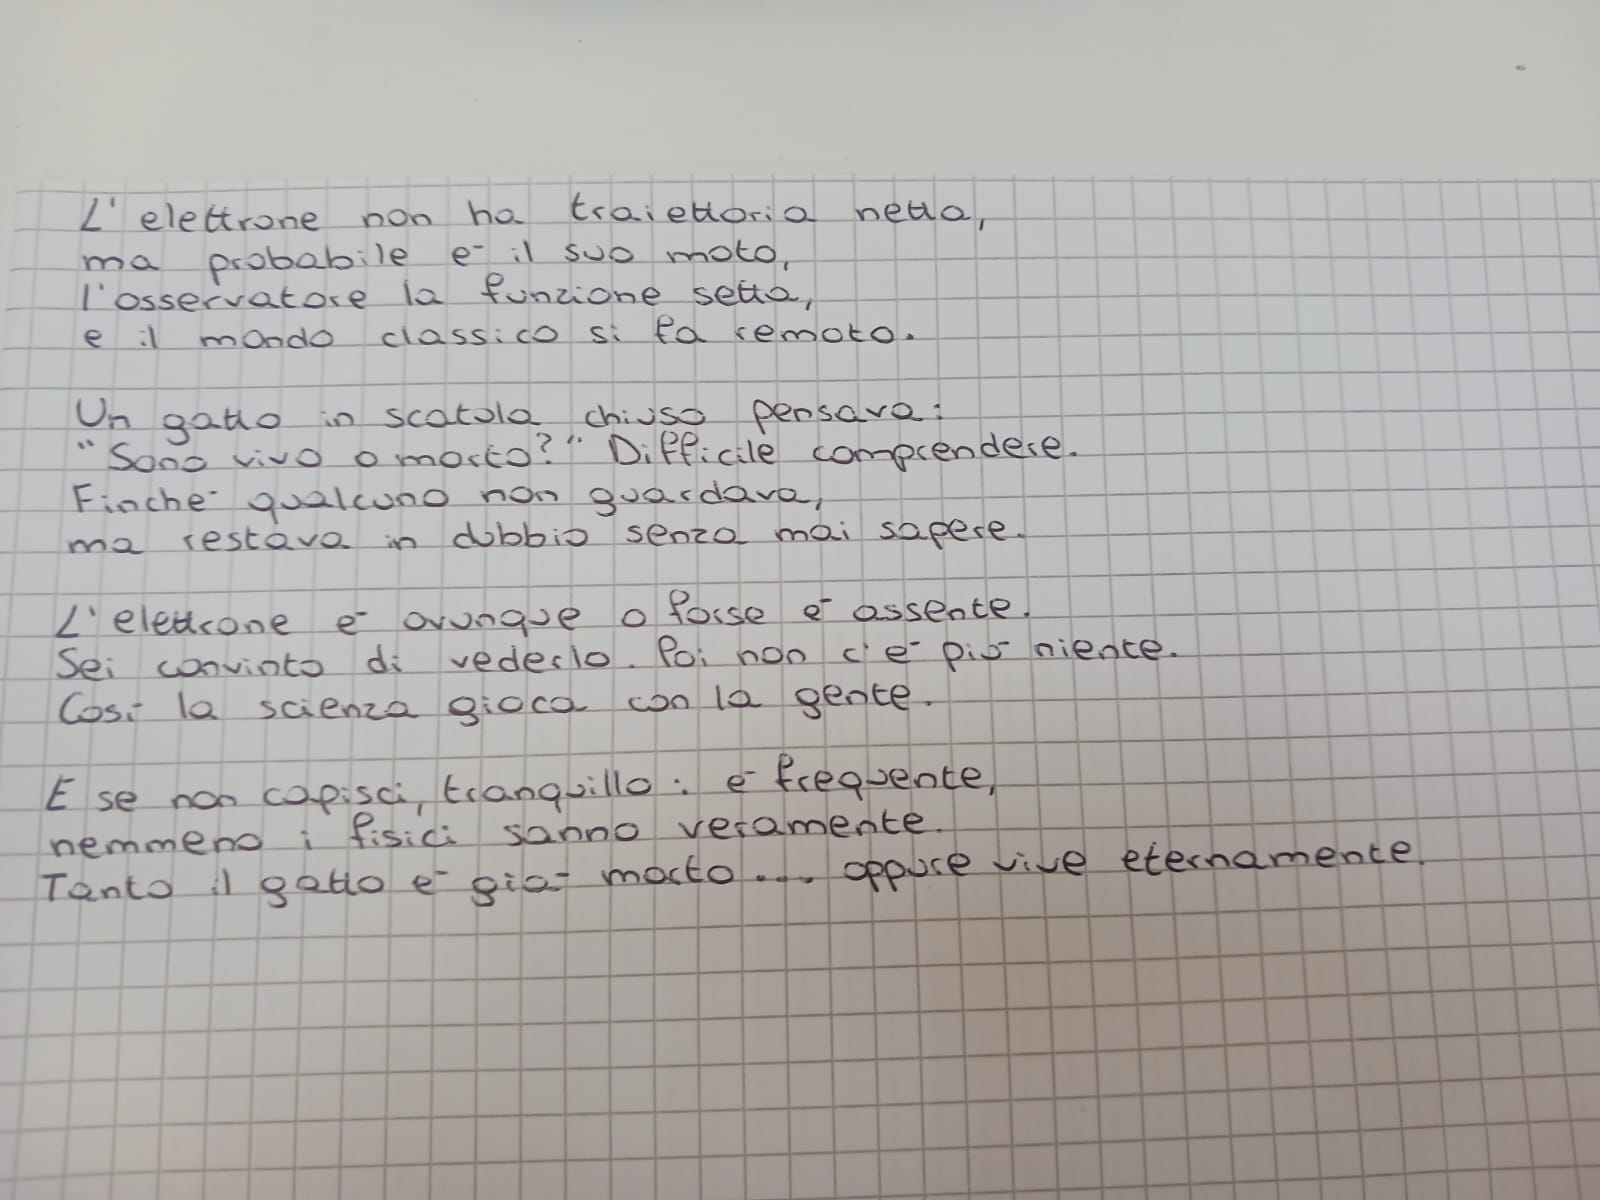 L'elettrone non ha traiettoria netta,
ma probabile è il suo moto,
l'osservatore la funzione setta,
e il mondo classico si fa remoto.
Un gatto in scatola chiuso pensava:
"Sono vivo o morto?" Difficile comprendere.
Finchè qualcuno non guardava,
ma restava in dubbio senza mai sapere.
L'elettrone è ovunque o forse è assente.
Sei convinto di vederlo. Poi non c'è più niente.
Così la scienza gioca con la gente.
E se non capisci, tranquillo: è frequente,
nemmeno i fisici sanno veramente.
Tanto il gatto è già morto.... oppure vive eternamente.